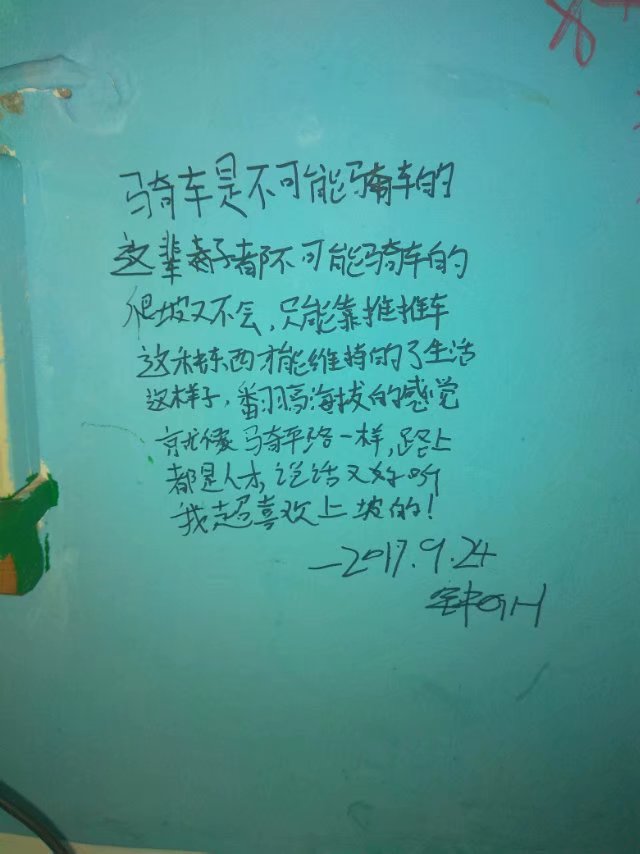 骑车是不可能骑车的
这辈子都不可能骑车的
爬坡又不会,只能靠推推车
这种东西才能维持的了生活
这样子,翻高海拔的感觉
就像骑平路一样,路上
都是人才,说话又好听
我超喜欢上坡的!
—2017.9.24
GH